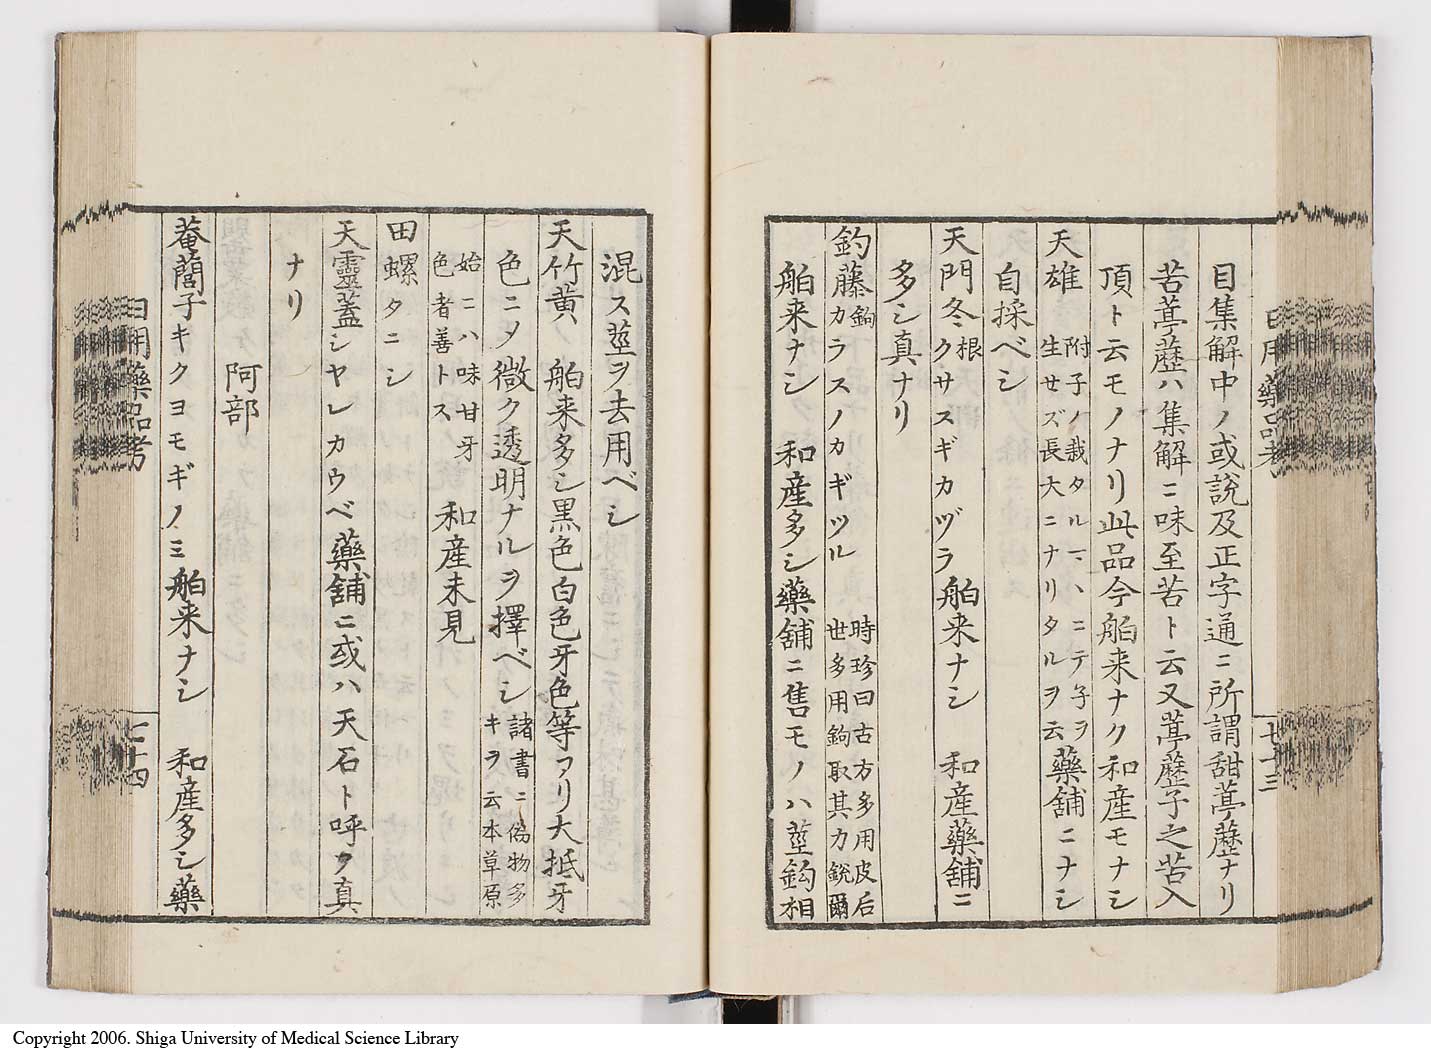 日用藥品考
七十三
目集解中ノ或說及正字通ニ所謂甜葶藶ナリ
苦葶藶ハ集解ニ味至苦ト云又葶藶子之苦入
頂ト云モノナリ此品今舶来ナク和産モナシ
天雄 附子ノ栽タルマヽニテ子ヲ
生セズ長大ニナリタルヲ云 藥舗ニナシ
自採ベシ
天門冬根 クサスギカヅラ 舶来ナシ 和産藥舗ニ
多シ真ナリ
釣藤鉤 カラスノカギツル 時珍曰古方多用皮后
世多用鉤取其力銳爾
舶来ナシ 和産多シ藥舗ニ售モノハ莖鈎相
混ス莖ヲ去用ベシ
天竹黄 舶来多シ黒色白色牙色等アリ大抵牙
色ニメ微ク透明ナルヲ擇ベシ 諸書ニ偽物多
キヲ云本草原
始ニハ味甘牙
色者善トス 和産未見
田螺 タニシ
天靈蓋 シヤレカウベ 藥舗ニ或ハ天石ト呼ク真
ナリ
阿部
菴䕡子 キクヨモギノミ 舶来ナシ 和産多シ藥
日用藥品考
七十四
Copyright 2006. Shiga University of Medical Science Library